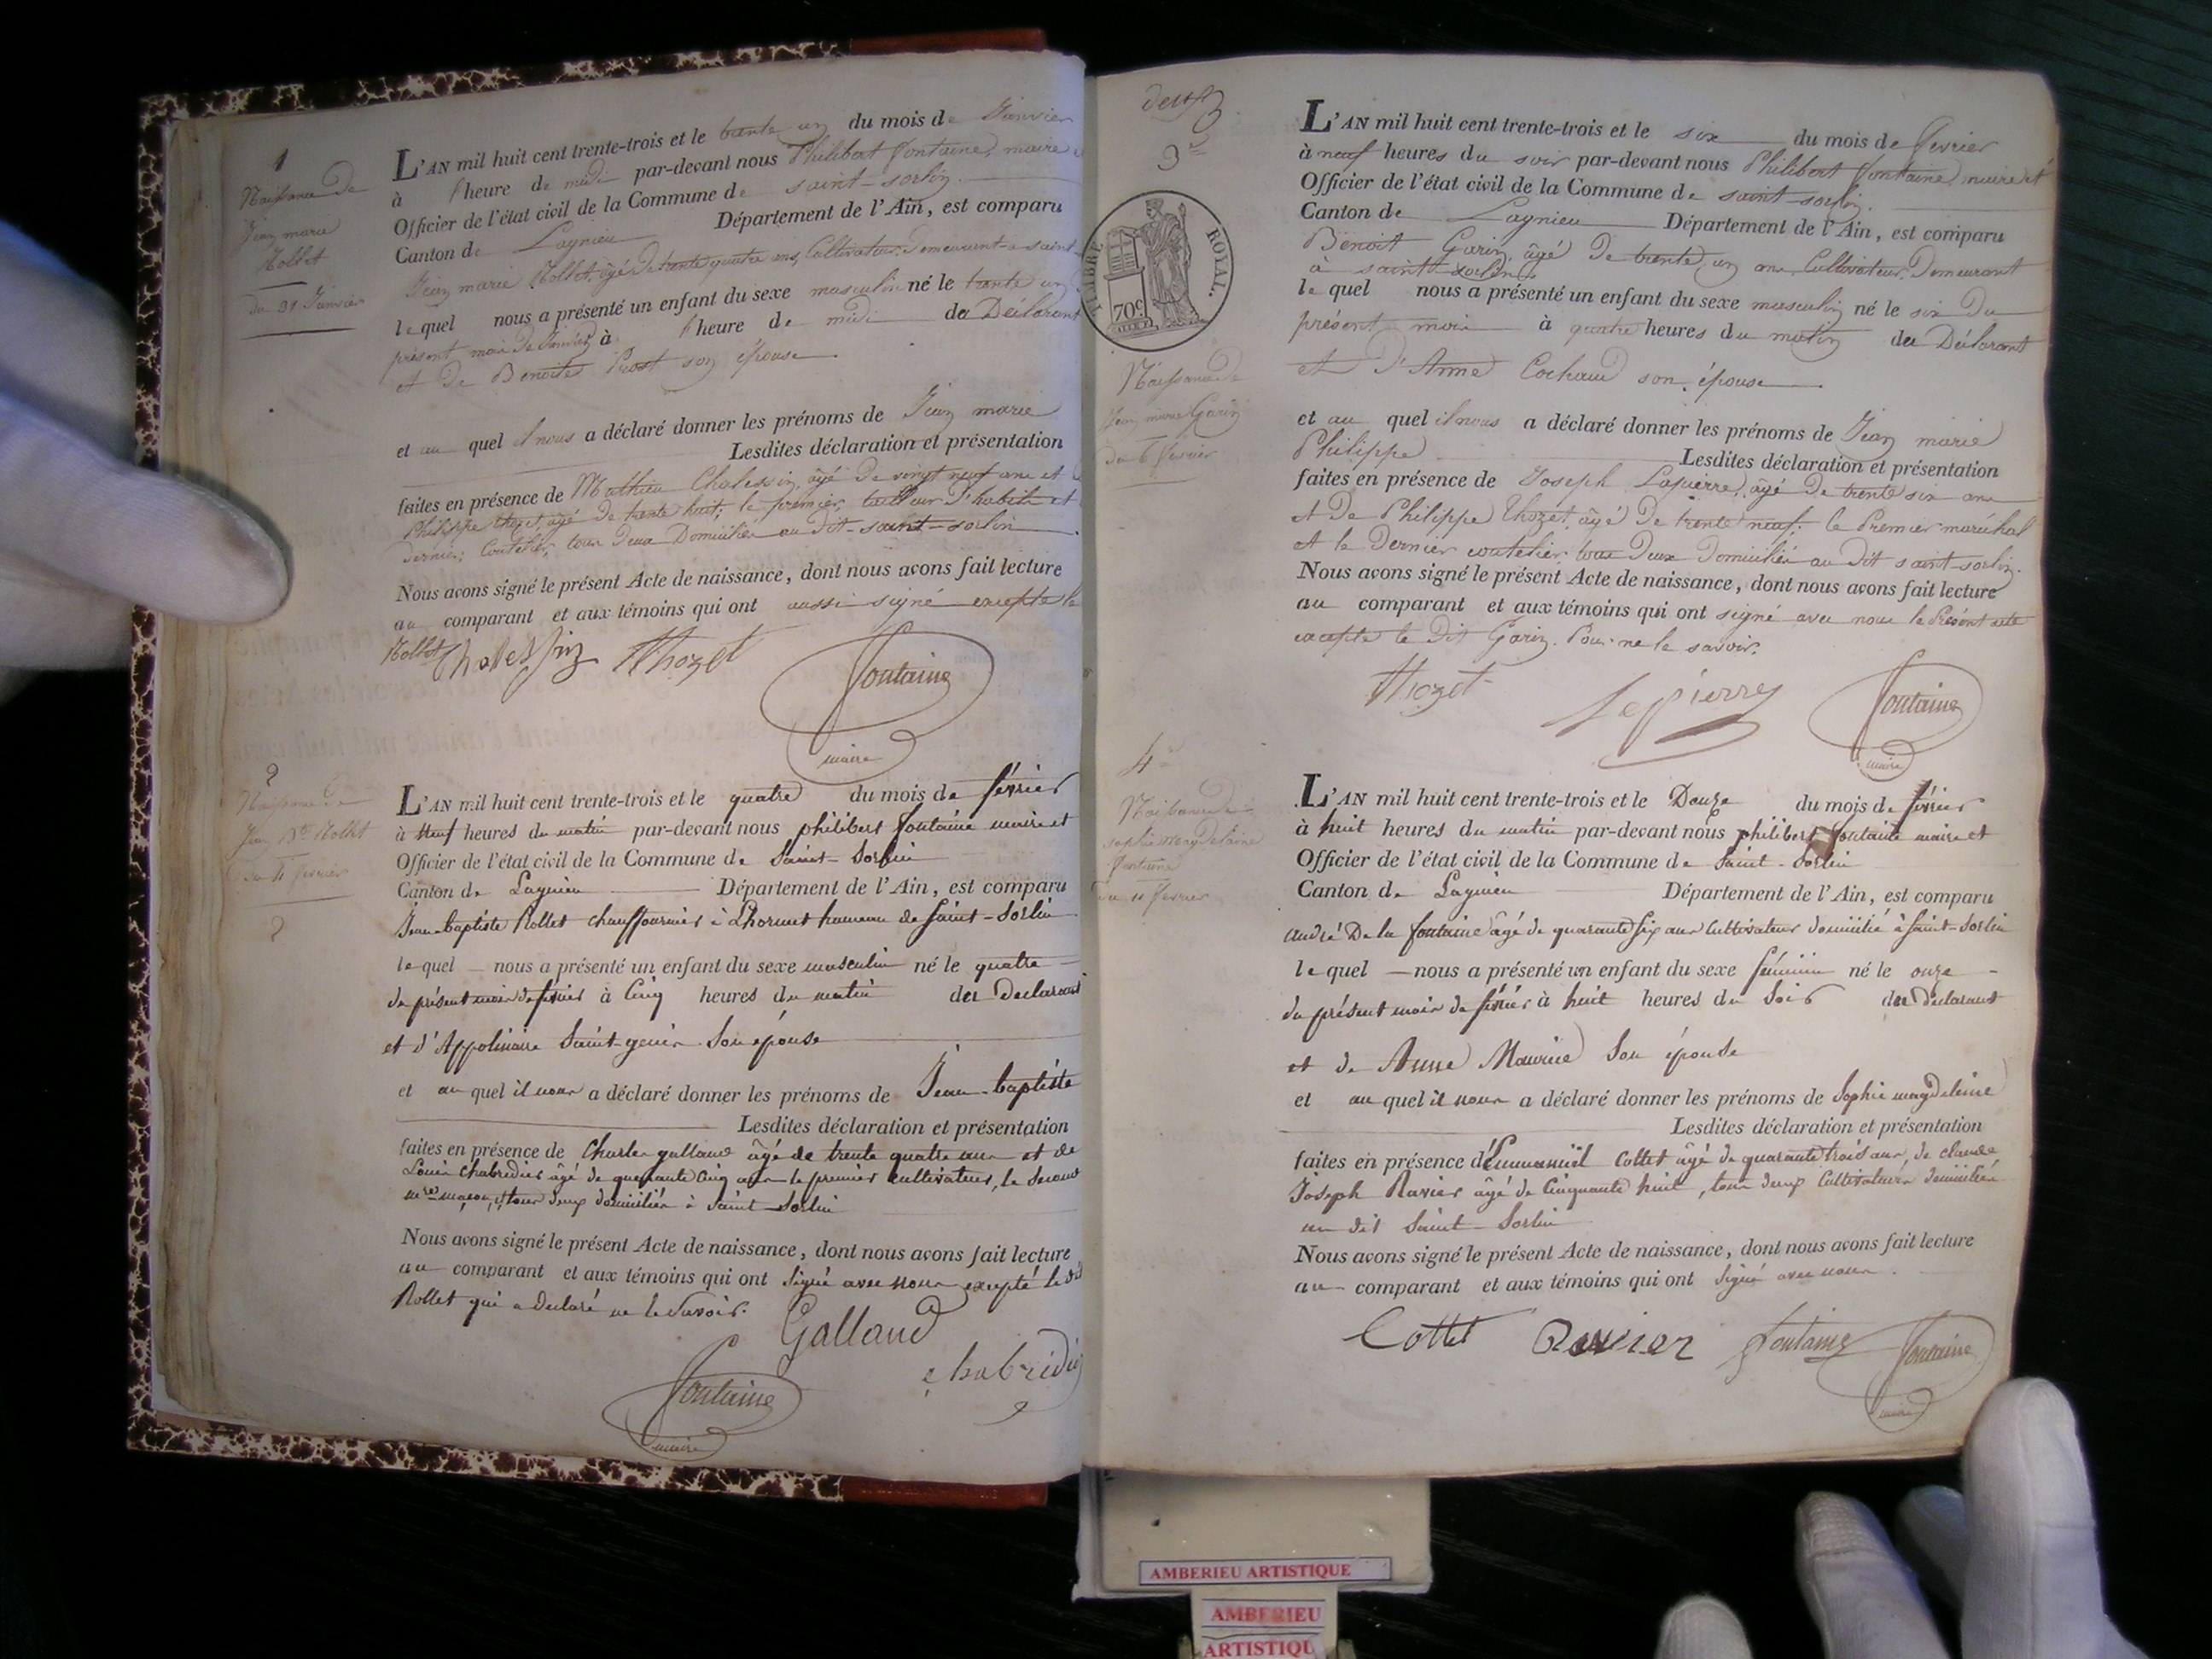 1
Naissance de
Jean marie
Rollet
du 31 Janvier
L'AN mil huit cent trente-trois et le trente un du mois de Janvier
à l'heure de midi par-devant nous Philibert fontaine, maire et
Officier de l'état civil de la Commune de saint-sorlin
Canton de Lagnieu Département de l'Ain, est comparu
Jean marie Rollet, âgé de trente quatre ans, Cultivateur, Demeurant a saint
lequel nous a présenté un enfant du sexe masculin né le trente un
présent mois de Janvier à l'heure de midi de Déclarant
et de Benoite Prost son épouse
et au quel il nous a déclaré donner les prénoms de Jean marie
Lesdites déclaration et présentation
faites en présence de Mathieu Chalessin, âgé de vingt neuf ans et
Philippe thozet, âgé de trente huit; le premier, tailleur d'habits et
dernier; Coutelier, tous deux Domiciliés au dit-saint-sorlin
Nous avons signé le présent Acte de naissance, dont nous avons fait lecture
au comparant et aux témoins qui ont aussi signé excepté le
Rollet Chalessin Thozet
fontaine
maire
2
Naissance de
Jean Bte Rollet
du 4 fevrier
L'AN mil huit cent trente-trois et le quatre du mois de février
à Neuf heures du matin par-devant nous philibert fontaine maire et
Officier de l'état civil de la Commune de Saint-Sorlin
Canton de Lagnieu Département de l'Ain, est comparu
Jean-baptiste Rollet chauffournier à Lhormet hameau de Saint-Sorlin
lequel nous a présenté un enfant du sexe masculin né le quatre
du présent mois de février à Cinq heures du matin de declarant
et d'Appolinaire Saint-genis Son épouse
et au quel il nous a déclaré donner les prénoms de Jean-baptiste
Lesdites déclaration et présentation
faites en présence de Charles galland âgé de trente quatre ans et de
Louis chabredier âgé de quarante Cinq ans le premier cultivateur, le second
mre maçon, tous deux domiciliés à Saint-Sorlin
Nous avons signé le présent Acte de naissance, dont nous avons fait lecture
au comparant et aux témoins qui ont signé avec nous excepté le dit
Rollet qui a declaré ne le Savoir.
Galland
chabridié
fontaine
maire
deux
3e
TIMBRE ROYAL.
70c
Naissance de
Jean marie Garin
du 6 fevrier
L'AN mil huit cent trente-trois et le six du mois de fevrier
à neuf heures du soir par-devant nous Philibert fontaine, maire et
Officier de l'état civil de la Commune de saint-sorlin
Canton de Lagnieu Département de l'Ain, est comparu
Benoit Garin, âgé De trente un ans, Cultivateur, Demeurant
à saint-sorlin
lequel nous a présenté un enfant du sexe masculin né le six du
présent mois à quatre heures du matin de Déclarant
et D'Anne Cochaud son épouse
et au quel il nous a déclaré donner les prénoms de Jean marie
Philippe Lesdites déclaration et présentation
faites en présence de Joseph Lapierre, âgé De trente six ans
et De Philippe Thozet, âgé De trente neuf; le Premier maréchal
et le Dernier coutelier tous Deux Domiciliés au dit saint-sorlin.
Nous avons signé le présent Acte de naissance, dont nous avons fait lecture
au comparant et aux témoins qui ont signé avec nous le Présent acte
excepté le Dit Garin. Pour ne le savoir.
Thozet Lepierre fontaine
maire
4e
Naissance de
sophie magdelaine
fontaine
du 11 fevrier
L'AN mil huit cent trente-trois et le Douze du mois de février
à huit heures du matin par-devant nous philibert fontaine maire et
Officier de l'état civil de la Commune de Saint-Sorlin
Canton de Lagnieu Département de l'Ain, est comparu
andré De la fontaine âgé de quarante Six ans Cultivateur domicilié à Saint-Sorlin
lequel nous a présenté un enfant du sexe féminin né le onze
du présent mois de février à huit heures du Soir de declarant
et de Anne Maurice Son épouse
et au quel il nous a déclaré donner les prénoms de Sophie magdeleine
Lesdites déclaration et présentation
faites en présence d'Emmanuël Cottet âgé de quarante trois ans, de claude
Joseph Ravier âgé de Cinquante huit, tous deux Cultivateurs domiciliés
au dit Saint-Sorlin
Nous avons signé le présent Acte de naissance, dont nous avons fait lecture
au comparant et aux témoins qui ont Signé avec nous.
Cottet Ravier fontaine fontaine
maire
AMBERIEU ARTISTIQUE
AMBERIEU
ARTISTIQU